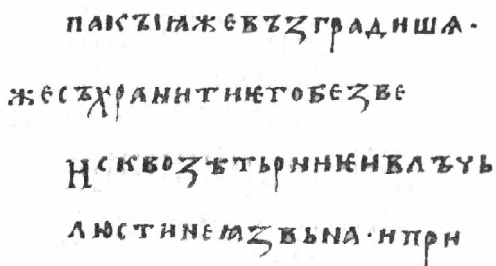 пакъіꙗжевъꙁградишѧ·
жесъхранитиѥгобеꙁве
Исквоꙁѣтьрниѥивлъчь
люстинеꙗꙁвьна·ипри